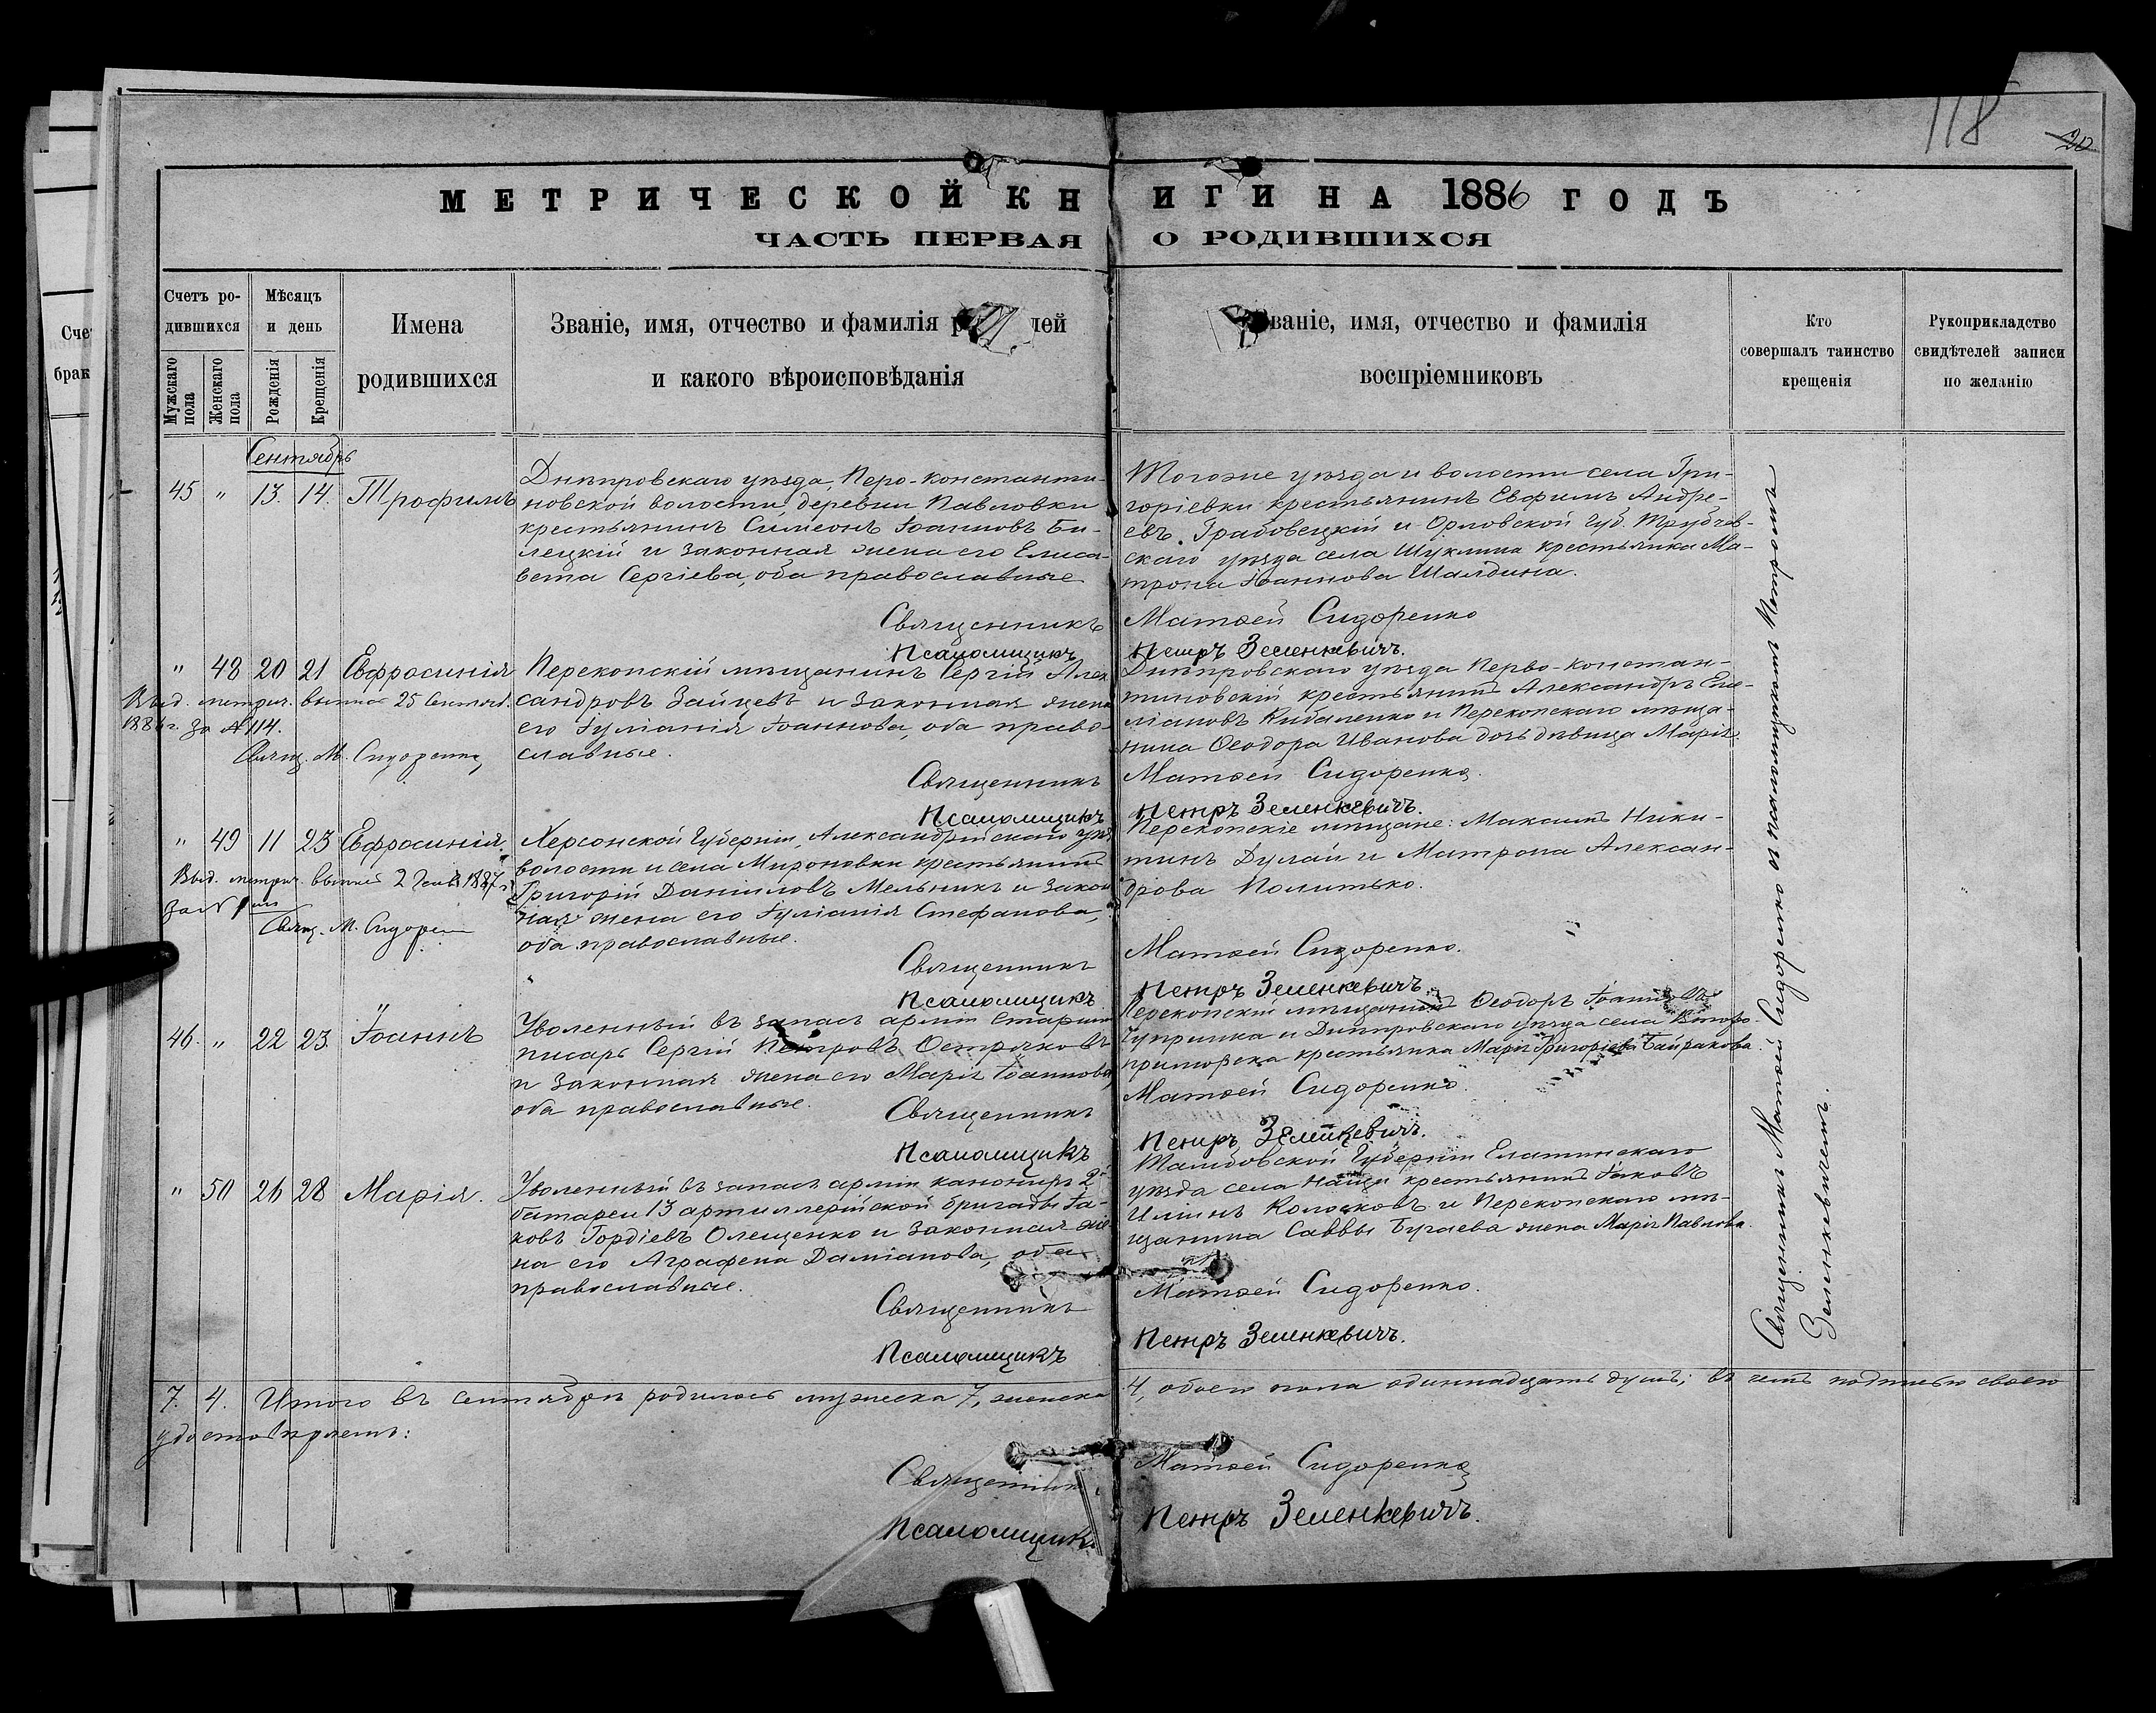 118
20
МЕТРИЧЕСКОЙ КНИГИ НА 1886 ГОДЪ
ЧАСТЬ ПЕРВАЯ О РОДИВШИХСЯ
Счетъ ро-
дившихся
Мужскаго пола
Женскаго пола
Мѣсяцъ
и день
Рожденія
Крещенія
Имена
родившихся
Званіе, имя, отчество и фамилія
и какого вѣроисповѣданія
Званіе, имя, отчество и фамилія
воспріемниковъ
Кто
совершалъ таинство
крещенія
Рукоприкладство
свидѣтелей записи
по желанію
Сентябрь
45 " 13. 14. Трофимъ
Днѣпровскаго уѣзда, Перо-Константи-
новской волости, деревни Павловки
крестьянинъ Симеонъ Іоанновъ Би-
лецкій и законная жена его Елиса-
вета Сергіева, оба православные
Тогоже уѣзда и волости села Гри-
горіевки крестьянинъ Евфимъ Андре-
евъ Грабовецкій и Орловской Губ. Трубчев-
скаго уѣзда села Шуклина крестьянка Ма-
трона Іоаннова Шалдина.
Священникъ Матѳей Сидоренко
Псаломщикъ Петръ Зеленкевичъ.
" 48 20 21 Евфросинія
Выд. метрич. выпись 25 Сентяб.
1886 г. за № 114.
Свящ. М. Сидоренко
Перекопскій мѣщанинъ Сергій Алек
сандровъ Зайцевъ и законная жена
его Іуліанія Іоаннова, оба право-
славные.
Днѣпровскаго уѣзда Перво-Констан-
тиновскій крестьянинъ Александръ Еме-
ліановъ Кибаленко и Перекопскаго мѣща-
нина Ѳеодора Иванова дочь дѣвица Марія.
Священникъ Матѳей Сидоренко.
Псаломщикъ Петръ Зеленкевичъ.
" 49 11 23 Евфросинія.
Выд. метрич. выпись 2 1887 г.
за №
Свящ. М. Сидорен
Херсонской Губерніи, Александрійскаго уѣз
волости и села Мироновки крестьянинъ
Григорій Даніиловъ Мельникъ и закон
ная жена его Іуліанія Стефанова,
оба православные.
Перекопскіе мѣщане: Максимъ Ники-
тинъ Дулай и Матрона Алексан-
дрова Политько.
Священникъ Матѳей Сидоренко.
Псаломщикъ Петръ Зеленкевичъ.
46. " 22 23. Іоаннъ
Уволенный въ запасъ арміи Старшій
писарь Сергій Петровъ Остряковъ
и законная жена его Марія Іоаннова
оба православные.
Перекопскій мѣщанинъ Ѳеодоръ Іоанновъ
Чупринка и Днѣпровскаго уѣзда села
крестьянка Марія Григоріева Байракова.
Священникъ Матѳей Сидоренко.
Псаломщикъ Петръ Зеленкевичъ.
" 50 26 28 Марія.
Уволенный въ запасъ арміи канониръ 2й
батареи 13 артиллерійской бригады Іа-
ковъ Гордіевъ Олещенко и законная же-
на его Аграфена Даміанова, оба
православные.
Тамбовской Губерніи Елатинскаго
уѣзда села крестьянинъ Іаковъ
Ильинъ Колосковъ и Перекопскаго мѣ-
щанина Саввы Бугаева жена Марія Павлова.
Священникъ Матѳей Сидоренко.
Псаломщикъ Петръ Зеленкевичъ.
Священникъ Матѳей Сидоренко съ псаломщикомъ Петромъ
Зеленкевичемъ.
7. 4. Итого въ сентябрѣ родилось мужеска 7, женска 4, обоего пола одиннадцать душъ; въ чемъ подписью своею
удостовѣряемъ:
Священникъ Матѳей Сидоренко
Псаломщикъ Петръ Зеленкевичъ.
Сче
брак